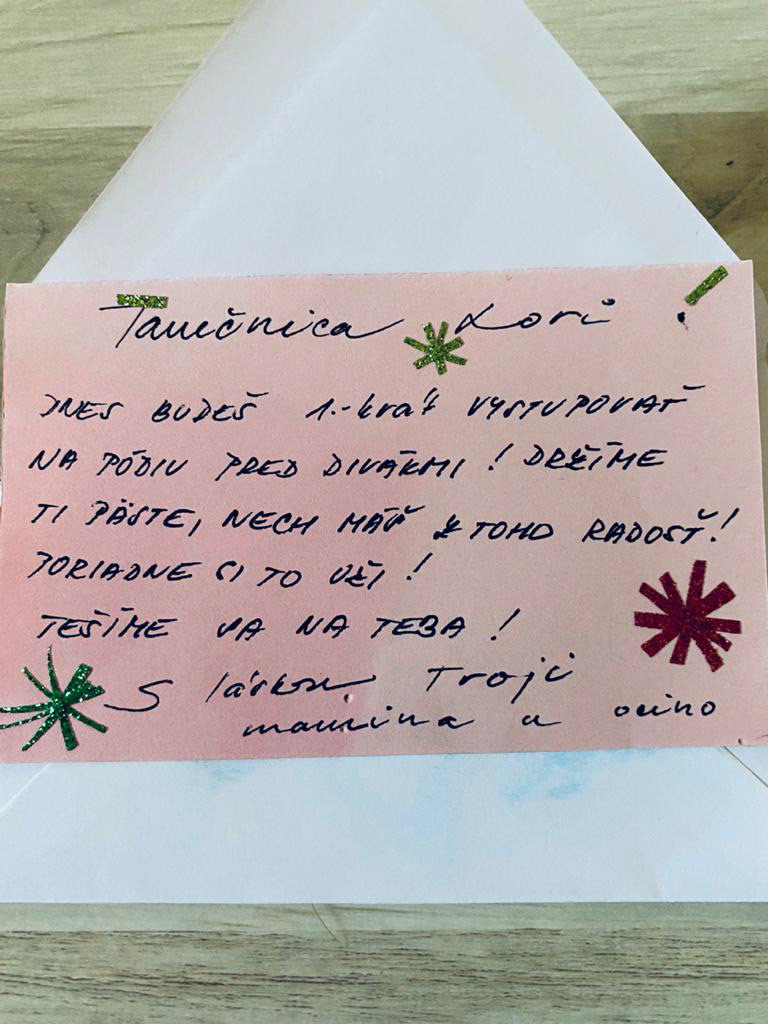 Tanečnica Lori !
DNES BUDEŠ 1.-krát VYSTUPOVAŤ
NA PÓDIU PRED DIVÁKMI ! DRŽÍME
TI PÄSTE, NECH MÁŠ Z TOHO RADOSŤ !
PORIADNE SI TO UŽI !
TEŠÍME SA NA TEBA !
S láskou Tvoji
mamina a ocino